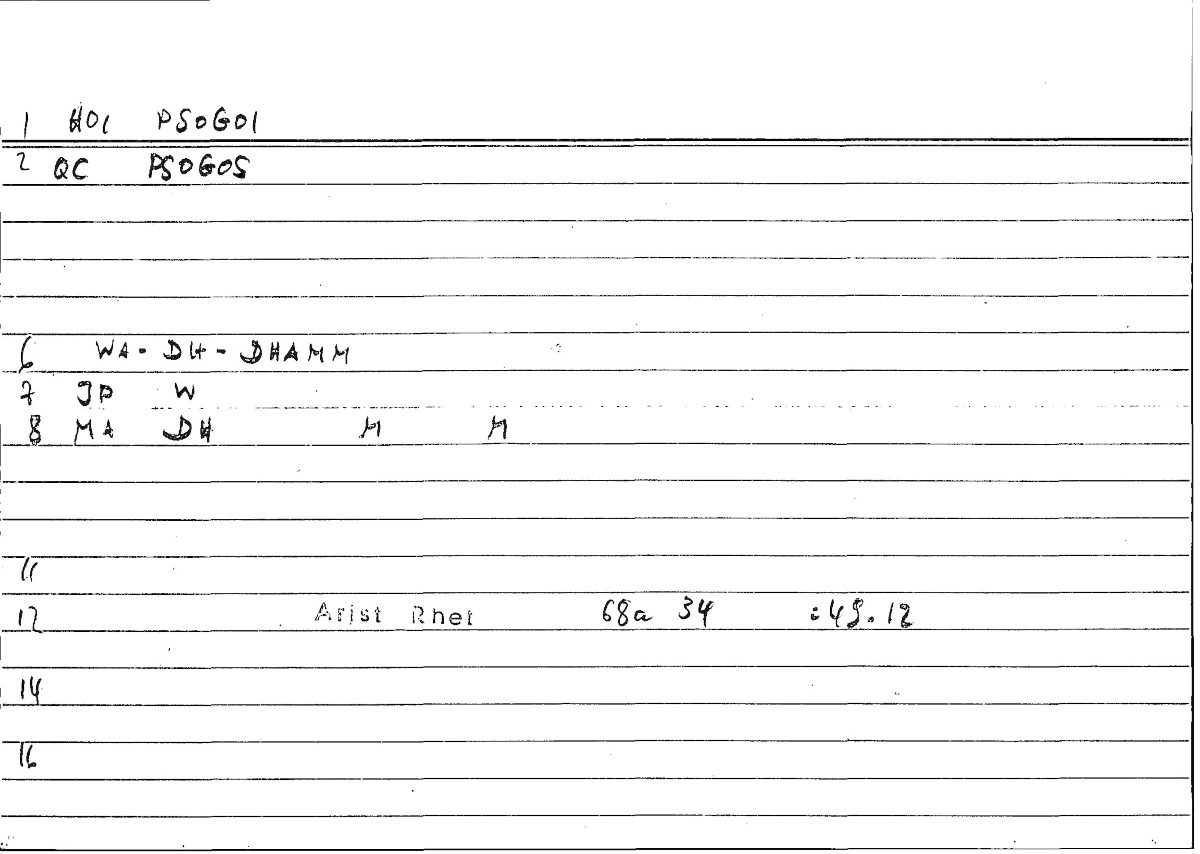 1 HOI PSOGOI
2 QC PSOGOS
6 WA-DH-DHAMM
7 JP W
8 MA DH M M
11
12 Arist Rhet 68a 34 :49.12
14
16